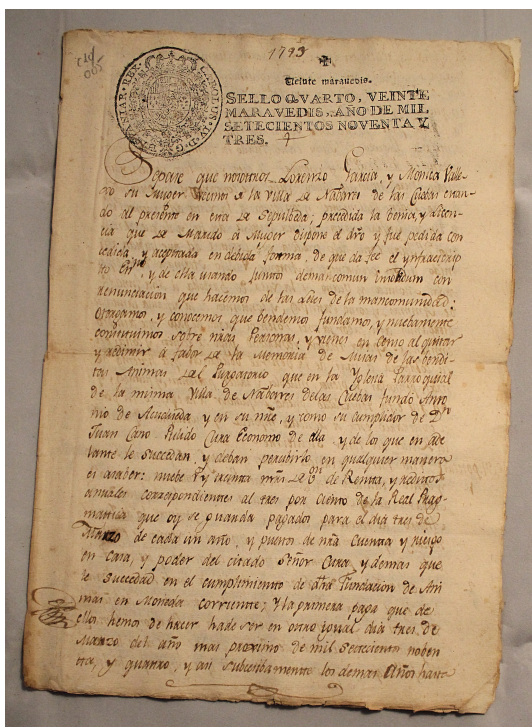 1793
CAROLUS IV D G HISPANIAR REX
Veinte marauedis.
SELLO QVARTO, VEINTE
MARAVEDIS, AÑO DE MIL
SETECIENTOS NOVENTA Y
TRES.
Sepase que nosotros Lorenzo Garcia, y Monica Valle-
jo su Muger vecinos de la Villa de Nabares de las Cuebas estan-
do al presente en esta de Sepulbeda; precedida la benia, y licen-
cia que de Marido à Muger dispone el dro y fue pedida con
cedida, y aceptada en debida forma, de que da fee el ynfraescrip
to y de ella usando juntos demancomun insolidum con
renunciacion que hacemos de las leies de la mancomunidad:
otorgamos, y conocemos, que bendemos fundamos, y nuebamente
constituimos sobre nras Personas, y vienes en censo al quitar
y redimir à fabor de la Memoria de Misas de las bendi-
tas Animas del Purgatorio que en la Yglesia Parroquial
de la misma Villa de Nabares de las Cuebas fundo Anto
nio de y en su nre, y como su cumplidor de Dn
Juan Cano Pulido Cura Economo de ella, y de los que en ade
lante le sucedan, y deban percibirlo en qualquier manera
es asaber: nuebe rs y treinta mrs de Vn de Renta, y reditos
annuales correspondientes al tres por ciento de la Real Prag-
matica que oy se guarda pagados para el dia tres de
Marzo de cada un año, y puestos de nra cuenta y riesgo
en casa, y poder del citado Señor Cura, y demas que
le sucedad en el cumplimiento de dha Fundacion de Ani
mas en Moneda corriente; Y la primera paga que de
ellos hemos de hacer hade ser en otro igual dia tres de
Marzo del año mas proximo de mil setecientos noben
ta, y quatro, y asi subcesibamente los demas Años hasta